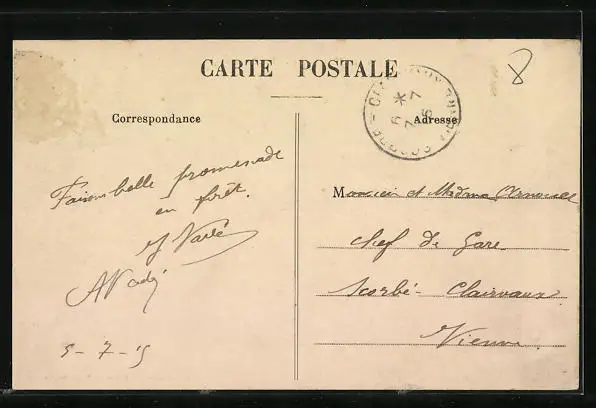 CARTE POSTALE
Correspondance
Adresse
Faisons belle promenade
en forêt.
5-7-15
Monsieur et Madame
chef de Gare
Scorbé-Clairvaux
Vienne.
8